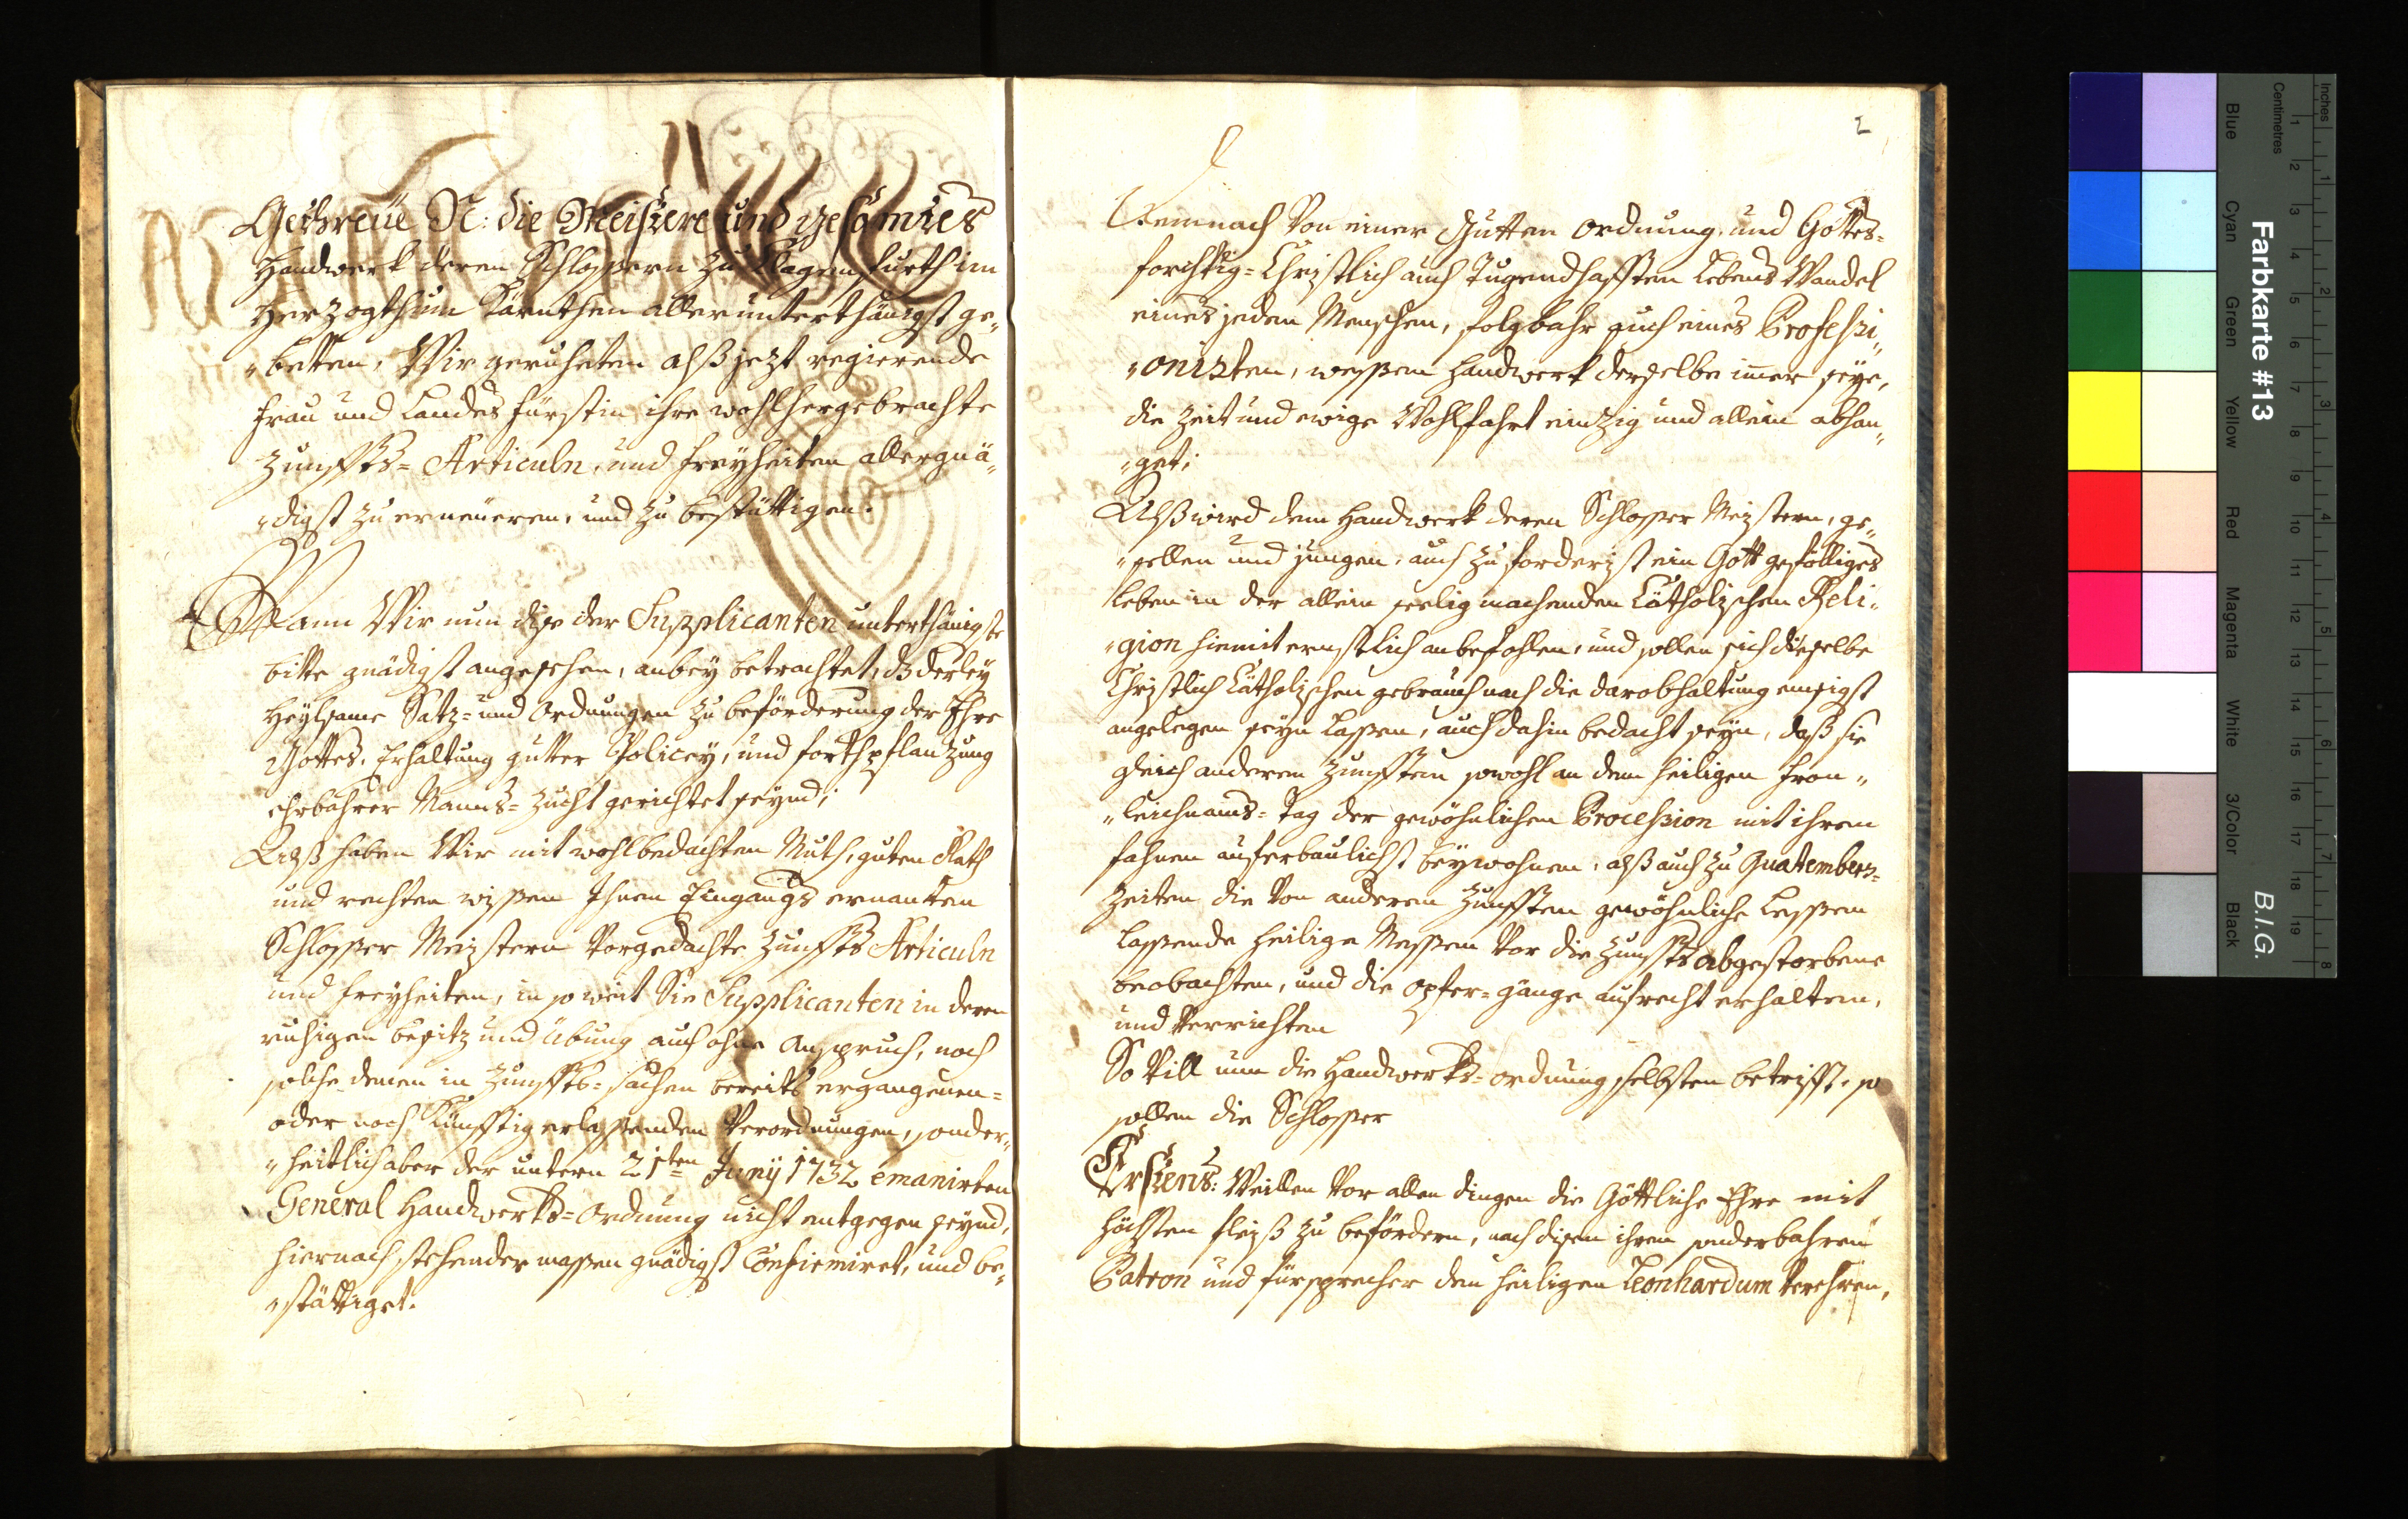 Gethreüe N: die Meistere und gesamtes
Handwerk deren Schlossern zu Klagenfurth im
Herzogthum Kärnthen allerunterthänigst ge„
„betten, Wir geruheten alß jezt regierende
Frau und Landes Fürstin ihre wohlhergebrachte
Zunffts= Articuln, und Freyheiten allergnä„
„digst zu erneüeren, und zu bestättigen.
Wann Wir nun dise der Supplicanten unterthänigste
bitte gnädigst angesehen, anbey betrachtet, dz derley
Heylsame Satz= und Ordnungen zu beförderung der Ehre
Gottes, Erhaltung gutter Policey, und forthpflanzung
ehrbahrer Manns= Zucht gerichtet seynd;
Alß haben Wir mit wohlbedachten Muth, guten Rath
und rechten wissen Ihnen Eingangs ernanten
Schlosser Meistern Vorgedachte Zunffts Articuln
und Freyheiten, in so weit Sie Supplicanten in deren
ruhigen besitz und übung auch ohne Anspruch, noch
solche denen in Zunffts= sachen bereits ergangenen=
oder noch Künfftig erlassenden Verordnungen, sonder„
„heitlich aber der untern 21ten Junÿ 1732 emanirten
General Handwerks=Ordnung nicht entgegen seynd,
hiernach stehender massen gnädigst Confirmiret, und be„
„stättiget.
2
Demnach Von einer Gutten Ordnung, und Gottes=
forchtig= Christlich auch Tugendhafften Lebens Wandel
eines jeden Menschen, folgbahr auch eines Professi„
„onisten, wessen Handwerk derselbe immer seye,
die Zeit und ewige Wohlfahrt einzig und allein abhan„
„get;
Alß wird dem Handwerk deren Schlosser Meistern, ge„
„sellen und jungen, auch zu forderist ein Gott gefölliges
Leben in der allein seelig machenden Catholischen Reli„
„gion hiemit ernstlich anbefohlen, und sollen sich dieselbe
Christlich Catholischen gebrauch nach die darobhaltung emsigst
angelegen seyn lassen, auch dahin bedacht seyn, daß sie
gleich anderen Zunfften sowohl an dem heiligen Fron„
„leichnams= Tag der gewöhnlichen Procession mit ihrem
fahnen auferbaulichst beywohnen, alß auch zu Quatembers=
Zeiten die Von anderen Zunfften gewöhnliche Lessen
lassende heilige Messen Vor die Zunffts abgestorbene
beobachten, und die opfer= gänge aufrecht erhalten,
und Verrichten
So Vill nun die Handwerks= ordnung selbsten betrifft, so
sollen die Schlosser
Erstens: Weillen Vor allen dingen die Göttliche Ehre mit
höchsten fleiß zu befördern, nach disen ihren sonderbahren
Patron und Fürsprecher den heiligen Leonhardum Verehren,
Farbkarte #13
B.I.G.
Blue
Cyan
Green
Yellow
Red
Magenta
White
3/Color
Black
Inches
Centimetres
1 2 3 4 5 6 7 8 9 10 11 12 13 14 15 16 17 18 19
1 2 3 4 5 6 7 8